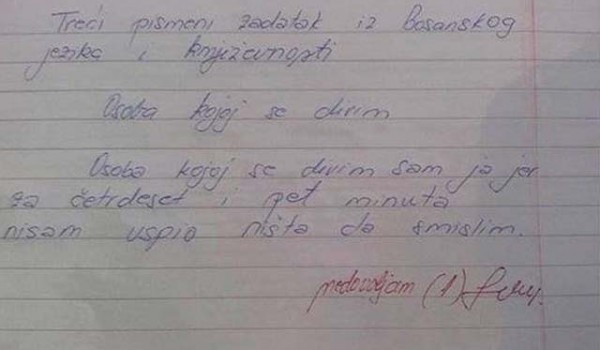 Treći pismeni zadatak iz Bosanskog
jezika i književnosti
Osoba kojoj se divim
Osoba kojoj se divim sam ja jer
za četrdeset i pet minuta
nisam uspio ništa da smislim.
nedovoljan (1)